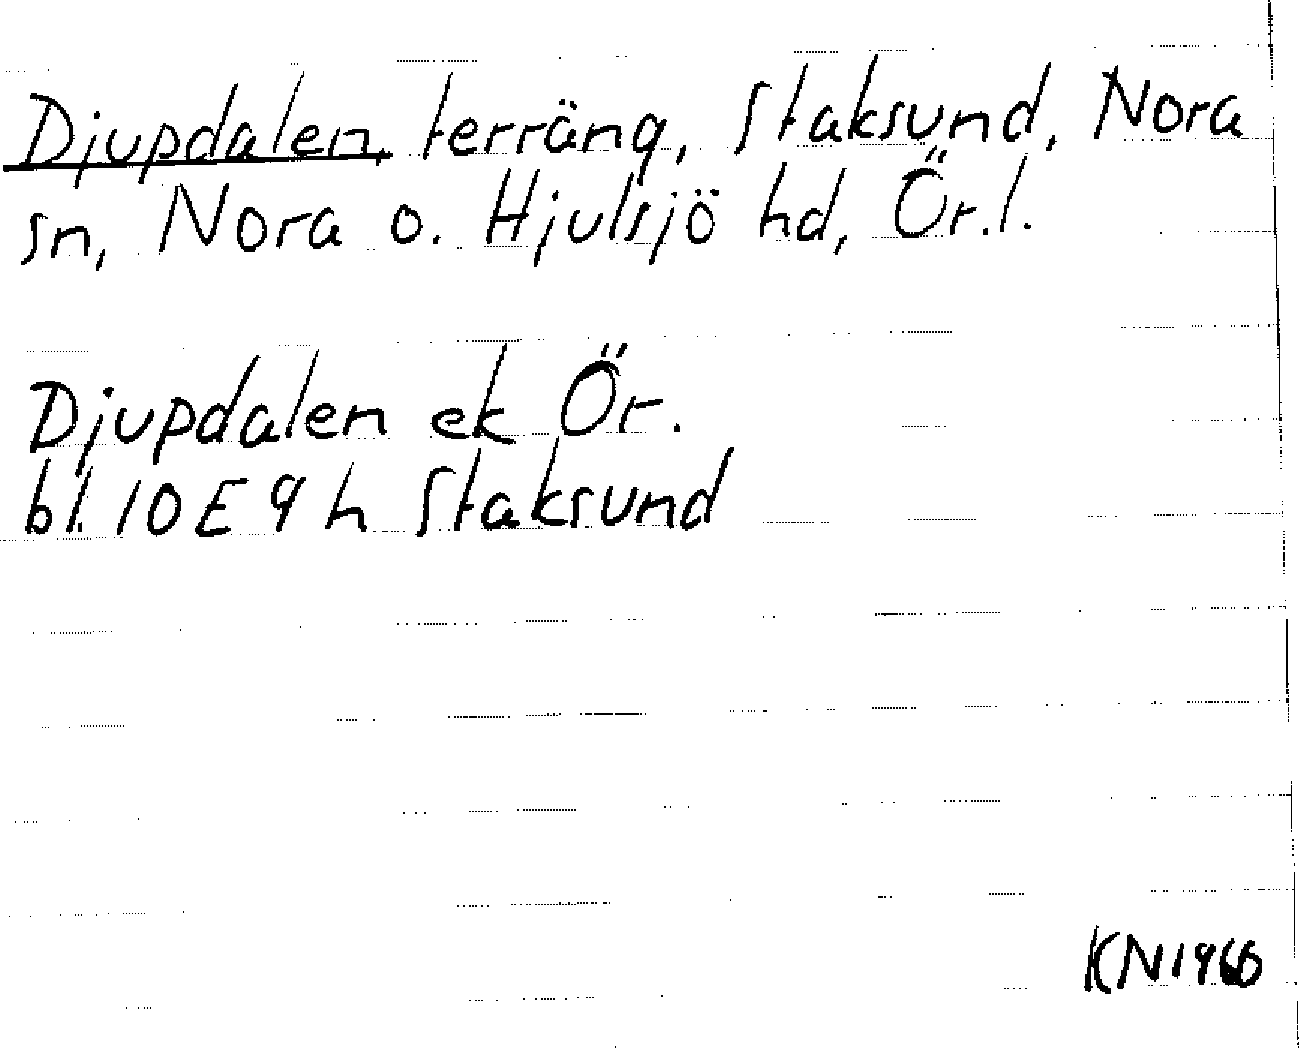 Djupdalen, terräng, Staksund, Nora
sn, Nora o. Hjulsjö hd, Ör.l.
Djupdalen ek Ör.
bl. 10 E 9 h Staksund
KN 1966